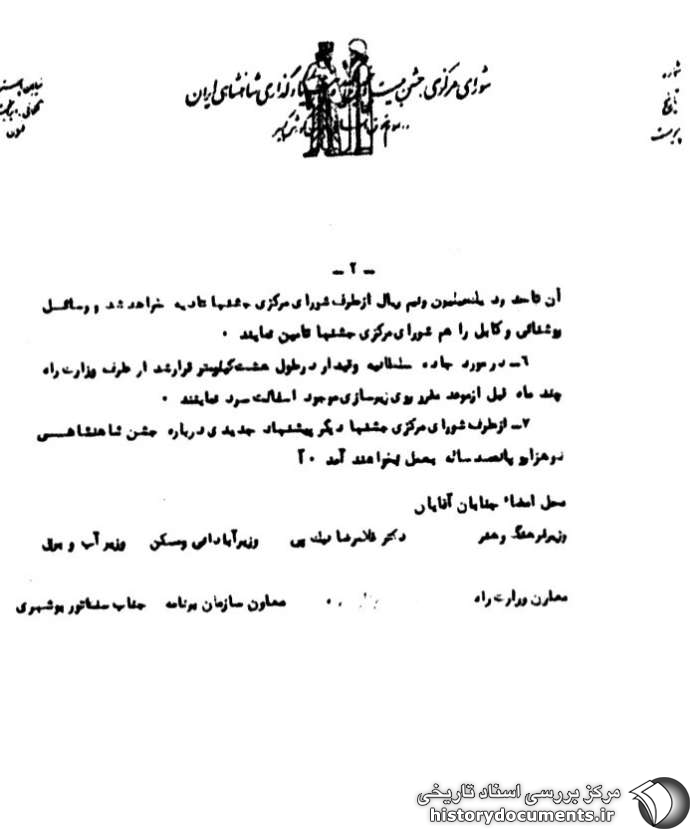 شماره
تاریخ
پیوست
شورای مرکزی جشن گذاری شاهنشاهی ایران
ـ ۲ ـ
آن تا حدود یلمیلیون ونیم ریال ازطرف شورای مرکزی جشنها تادیه خواهد شد و وسائل
روشنائی وکابل را هم شورای مرکزی جشنها تامین نمایند ۰
۶ـ درمورد جاده سلطانیه وقیدار درطول هشت کیلومتر قرارشد از طرف وزارت راه
چند ماه قبل ازموعد مقرر روی زیرسازی موجود اسفالت سرد نمایند ۰
۷ـ ازطرف شورای مرکزی جشنها دیگر پیشنهاد جدیدی درباره جشن شاهنشاهی
دوهزارو پانصد ساله بعمل نخواهند آمد ۰
محل امضاء جنابان آقایان
وزیرفرهنگ وهنر دکتر غلامرضا نیک پی وزیرآبادانی ومسکن وزیر آب و برق
معاون وزارت راه معاون سازمان برنامه جناب سناتور بوشهری
مرکز بررسی اسناد تاریخی
historydocuments.ir